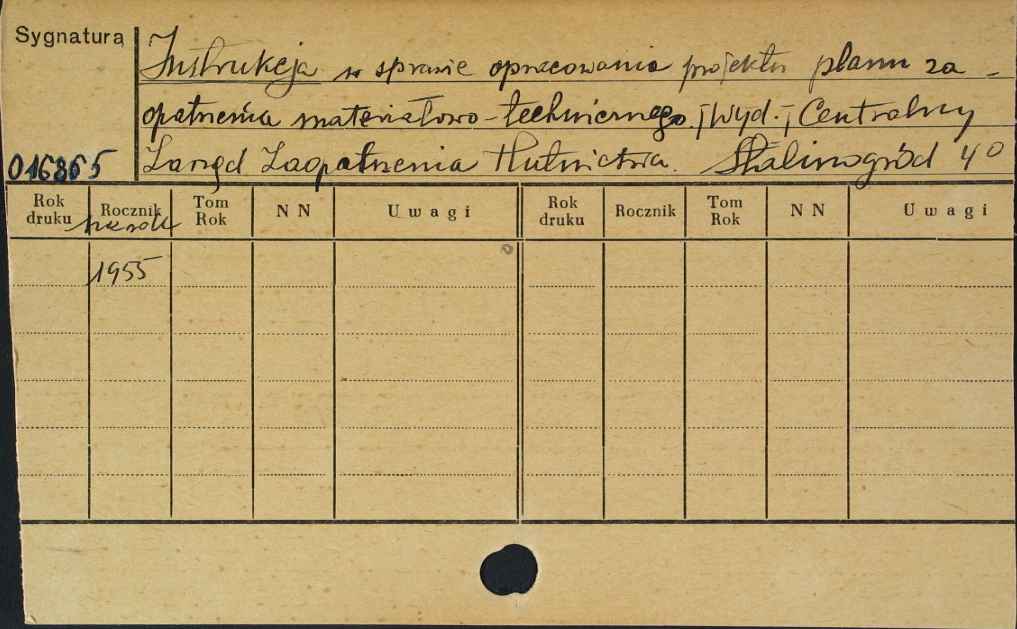 Sygnatura
Instrukcja w sprawie opracowania projektu planu za-
opatrzenia materiałowo-technicznego. [Wyd.:] Centralny
016865 Zarząd Zaopatrzenia Hutnictwa. Stalinogród 4°
Rok druku Rocznik Tom Rok NN Uwagi Rok druku Rocznik Tom Rok NN Uwagi
na rok
1955